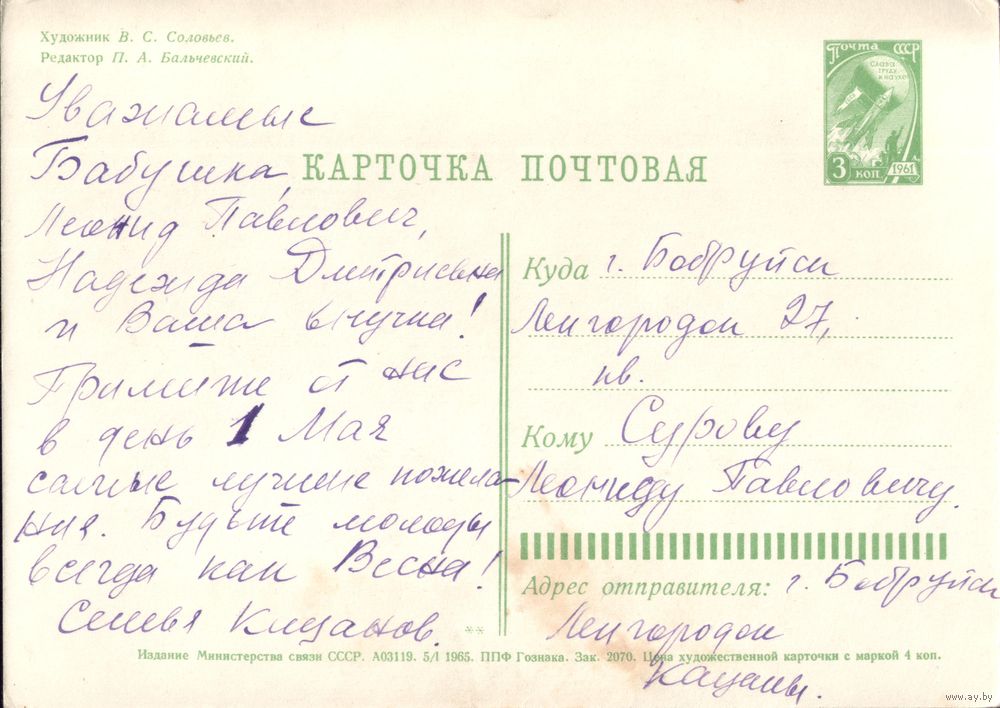 Художник В. С. Соловьев.
Редактор П. А. Бальчевский.
Почта СССР
СЛАВА
ТРУДУ
И НАУКЕ
3 КОП 1961
КАРТОЧКА ПОЧТОВАЯ
Уважаемые
Бабушка,
Леонид Павлович,
Надежда Дмитриевна
и Ваша внучка!
Примите от нас
в день 1 Мая
самые лучшие пожела-
ния. Будьте молоды
всегда как Весна!
Семья
Куда г. Бобруйск
Ленгородок 27,
кв.
Кому Сурову
Леониду Павловичу.
Адрес отправителя: г. Бобруйск
Ленгородок
Издание Министерства связи СССР. А03119. 5/I 1965. ППФ Гознака. Зак. 2070. Цена художественной карточки с маркой 4 коп.
www.ay.by